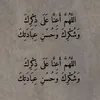 اللهم أعنا على ذكرك
وشكرك وحسن عبادتك
اللهم أعنا على ذكرك
وشكرك وحسن عبادتك